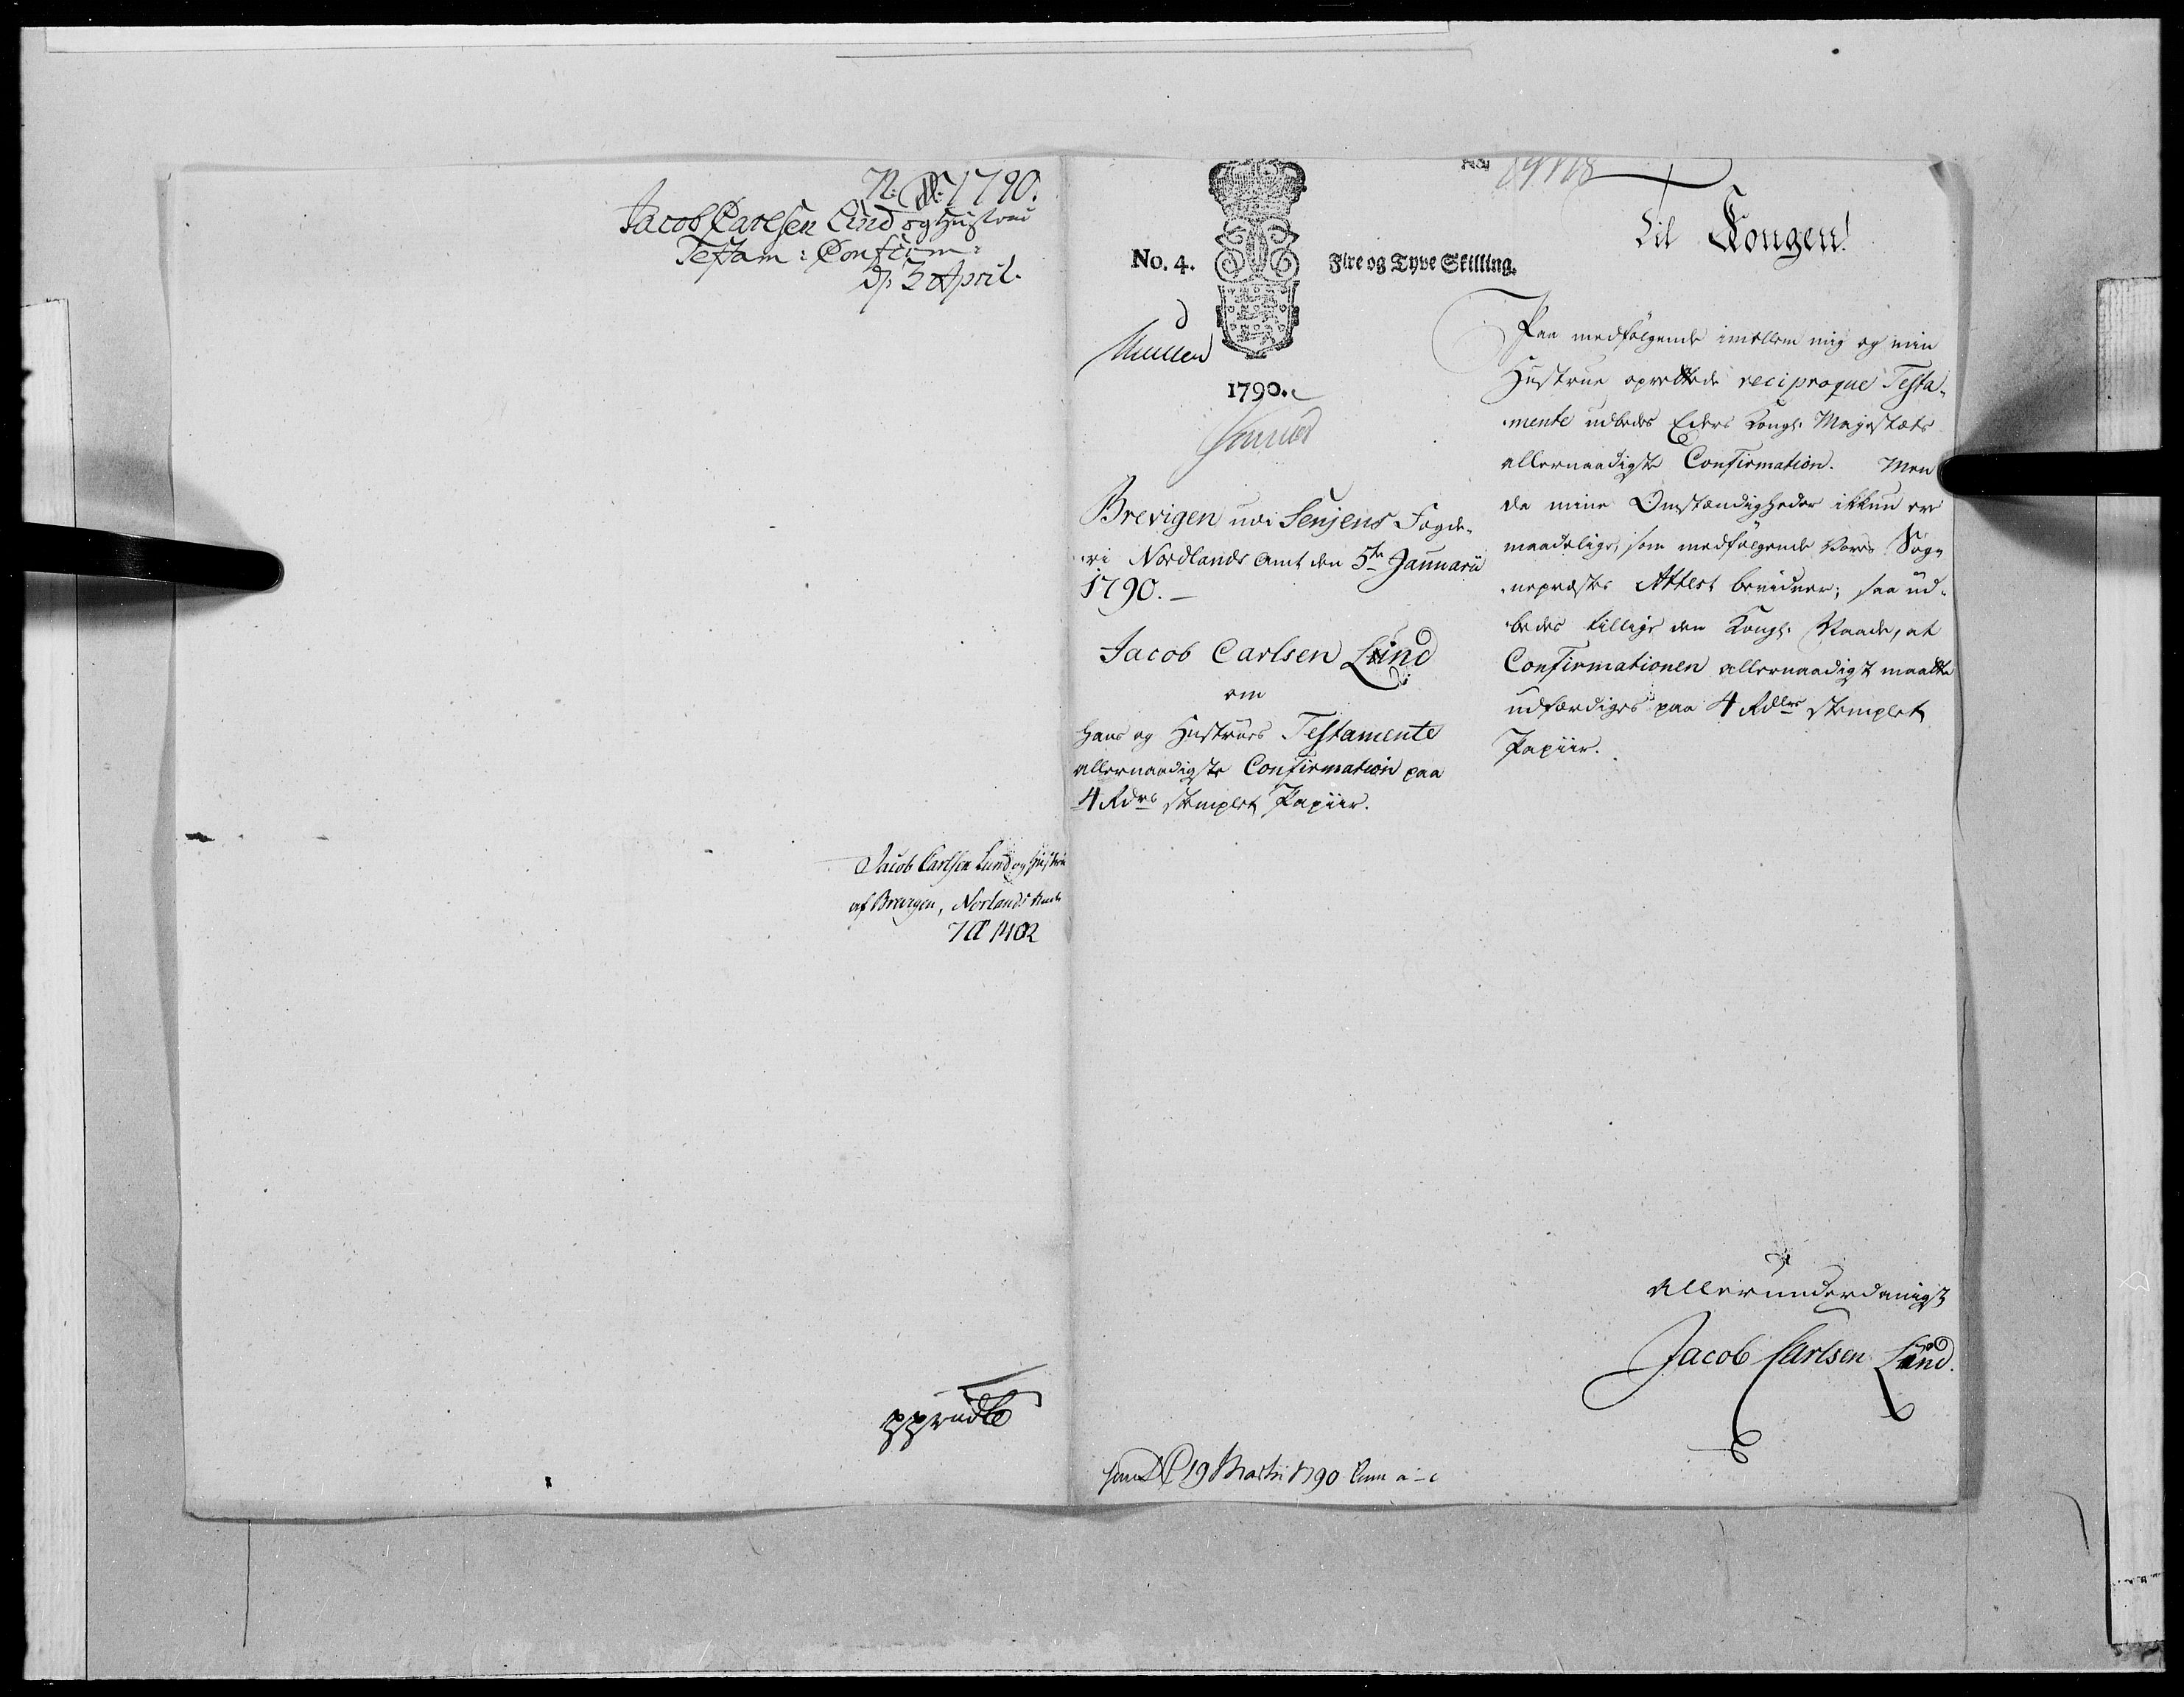 N: 1790.
Jacob Carlsen Lind og Hustrue
Testam: Confirm:
D/ 3 April.
Jacob Carlsen Lund og Hustrue
af Brevigen, Norlands Amt
1402
No. 4.
Fire og Tyve Skilling.
1790.
Brevigen udi Senjens Fogde-
-ri Nordlands Amt den 5te Januarii
1790.-
Jacob Carlsen Lund
om
Hans og Hustrues Testamente
allernaadigste Confirmation paa
4 Rdrs stemplet Papiir.
No.
Til Kongen!
Paa medfølgende imellem mig og min
Hustrue oprettede reciproque Testa-
-mente udbedes Eders Kongl. Majestæts
allernaadigste Confirmation. Men
da mine Omstændigheder ikkun ere
maadelige, som medfølgende vores Sog-
-nepræstes Attest bevidner; saa ud-
-bedes tillige den Kongl. Naade, at
Confirmationen allernaadigst maatte
udfærdiges paa 4 Rdlrs stemplet
Papiir.
Allerunderdanigst
Jacob Carlsen Lund.
19 Martii 1790